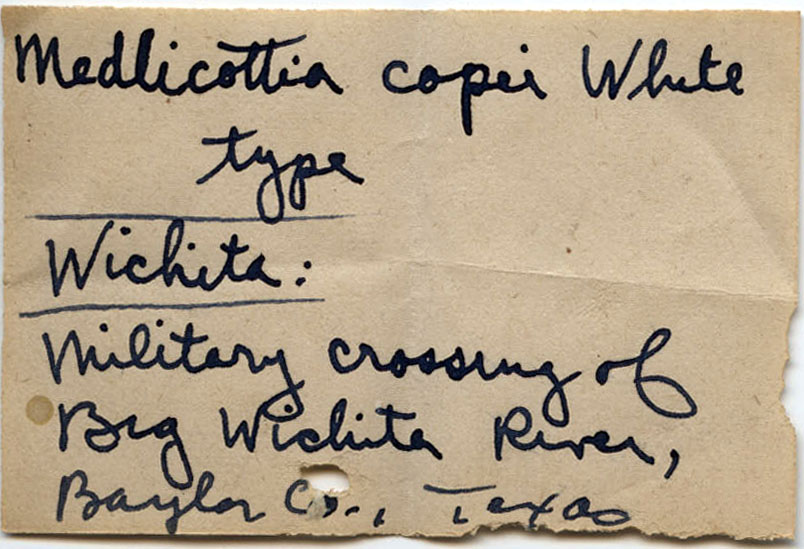 Medlicottia copei White
type
Wichita:
Military crossing of
Big Wichita River,
Baylor Co., Texas